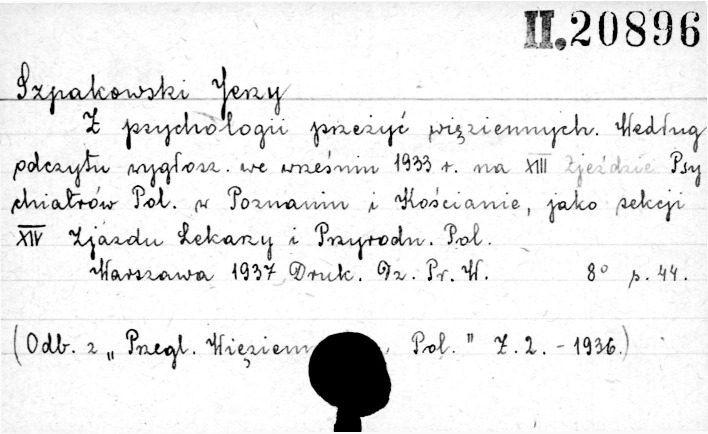 II. 20896
Szpakowski Jerzy
Z psychologii przeżyć więziennych. Według
odczytu wygłosz. we wrześniu 1933 r. na XIII Zjeździe Psy
chiatrów Pol. w Poznaniu i Kościanie, jako sekcji
XIV Zjazdu Lekarzy i Przyrodn. Pol.
Warszawa 1937 Druk. Dz. Pr. W. 8° p. 44.
(Odb. z „Przegl. Pol." Z. 2. - 1936.)